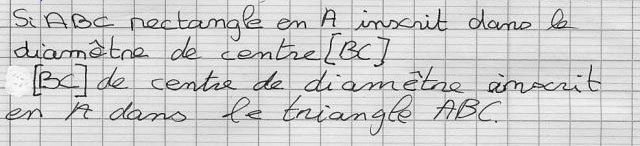 Si ABC rectangle en A inscrit dans le
diamètre de centre [BC]
[BC] de centre de diamêtre inscrit
en A dans le triangle ABC.